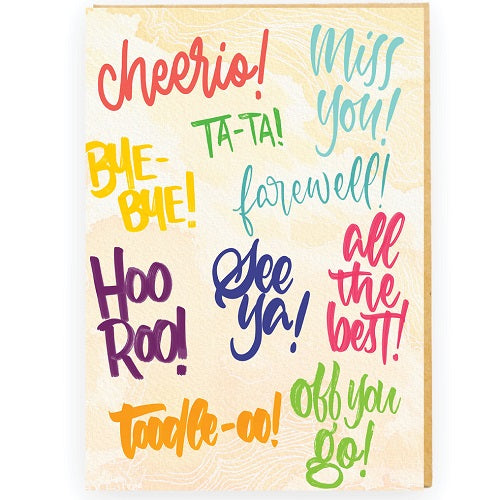 cheerio!
Miss
you!
TA-TA!
BYE-
BYE!
farewell!
HOO
ROO!
See
ya!
all
the
best!
Toodle-oo!
off you
go!